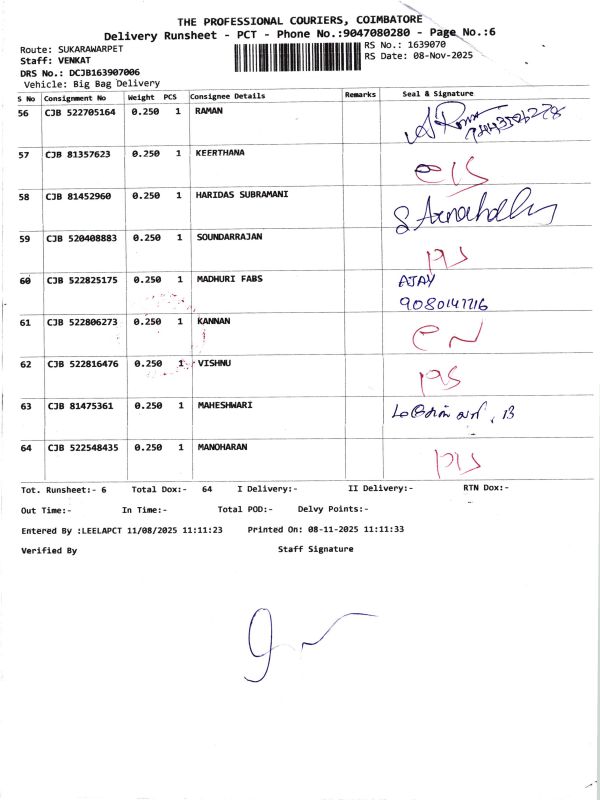 THE PROFESSIONAL COURIERS, COIMBATORE
Delivery Runsheet - PCT - Phone No.:9047080280 - Page No.:6
Route: SUKARAWARPET
RS No.: 1639070
Staff: VENKAT
RS Date: 08-Nov-2025
DRS No.: DCJB163907006
Vehicle: Big Bag Delivery
S No Consignment No Weight PCS Consignee Details Remarks Seal & Signature
56 CJB 522705164 0.250 1 RAMAN
57 CJB 81357623 0.250 1 KEERTHANA
58 CJB 81452960 0.250 1 HARIDAS SUBRAMANI
59 CJB 520408883 0.250 1 SOUNDARRAJAN
60 CJB 522825175 0.250 1 MADHURI FABS AJAY
9080147716
61 CJB 522806273 0.250 1 KANNAN
62 CJB 522816476 0.250 1 VISHNU
63 CJB 81475361 0.250 1 MAHESHWARI
64 CJB 522548435 0.250 1 MANOHARAN
Tot. Runsheet:- 6 Total Dox:- 64 I Delivery:- II Delivery:- RTN Dox:-
Out Time:- In Time:- Total POD:- Delvy Points:-
Entered By :LEELAPCT 11/08/2025 11:11:23 Printed On: 08-11-2025 11:11:33
Verified By Staff Signature